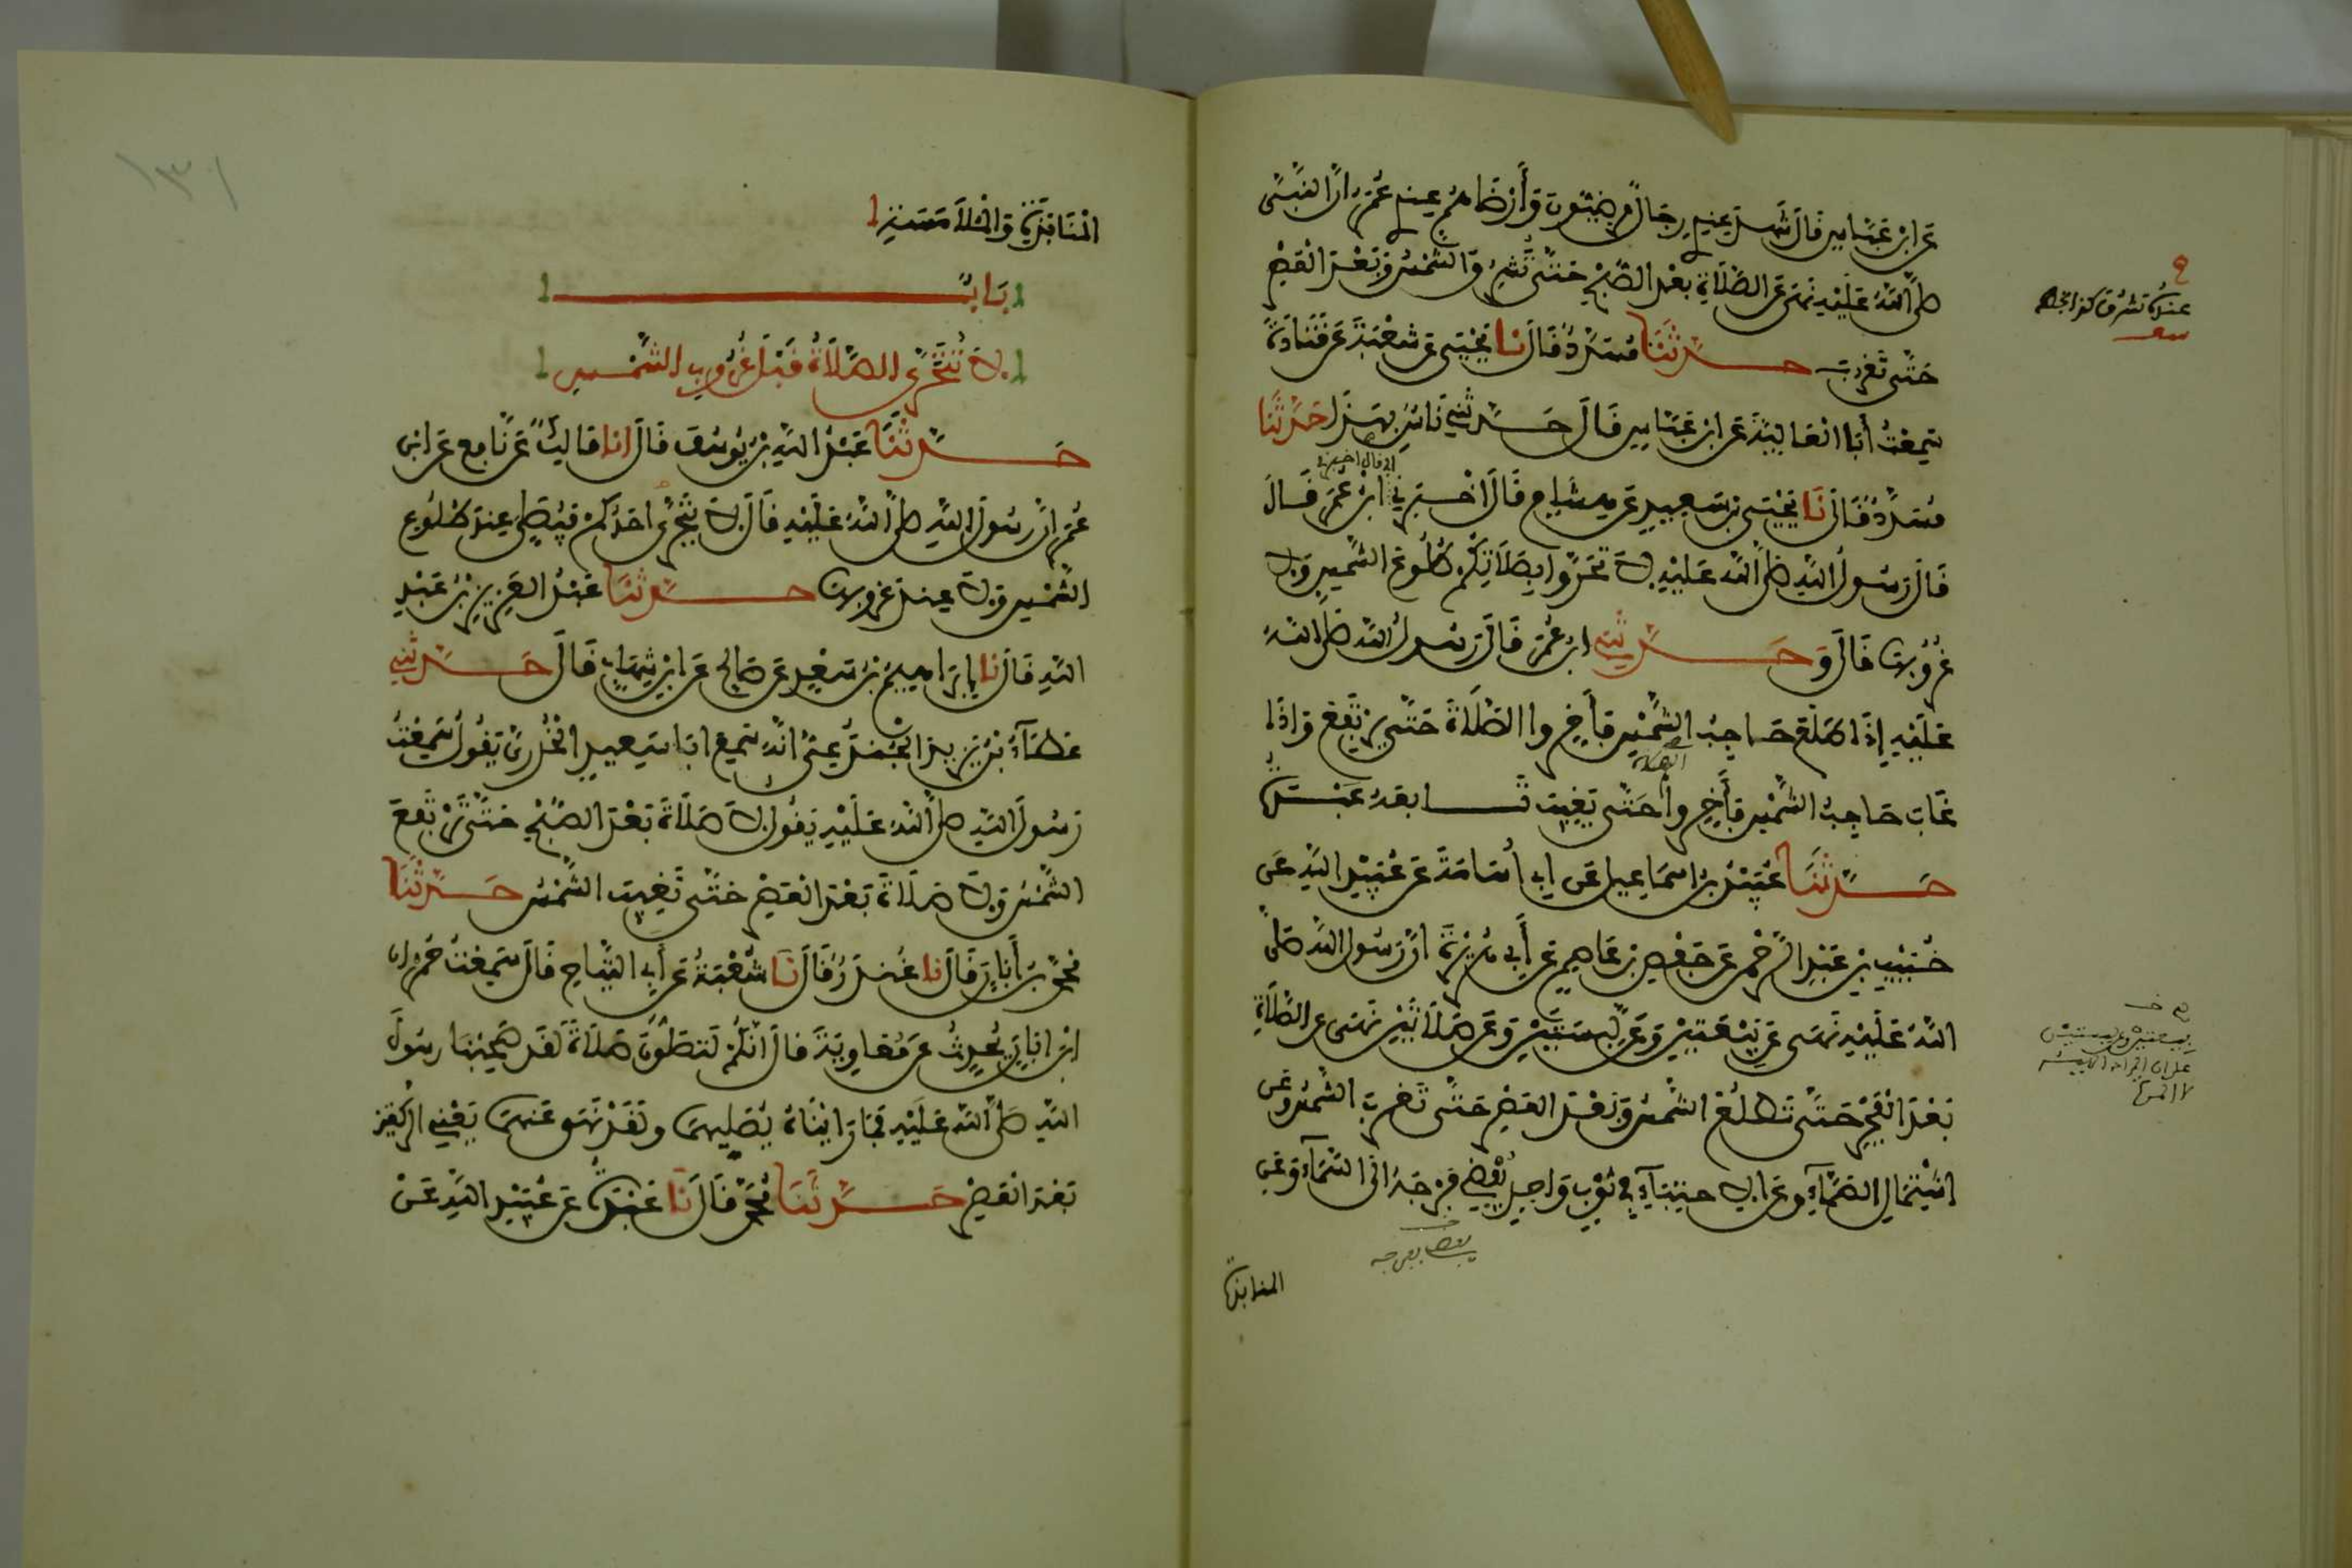 عَنِ ابْنِ عَبَّاسٍ قَالَ شَهِدَ عِنْدِي رِجَالٌ مَرْضِيُّونَ وَأَرْضَاهُمْ عِنْدِي عُمَرُ أَنَّ النَّبِيَّ
صَلَّى اللَّهُ عَلَيْهِ نَهَى عَنِ الصَّلَاةِ بَعْدَ الصُّبْحِ حَتَّى تُشْرِقَ الشَّمْسُ وَبَعْدَ الْعَصْرِ
حَتَّى تَغْرُبَ حَدَّثَنَا مُسَدَّدٌ قَالَ نَا يَحْيَى عَنْ شُعْبَةَ عَنْ قَتَادَةَ
سَمِعْتُ أَبَا الْعَالِيَةِ عَنِ ابْنِ عَبَّاسٍ قَالَ حَدَّثَنِي نَاسٌ بِهَذَا حَدَّثَنَا
مُسَدَّدٌ قَالَ نَا يَحْيَى بْنُ سَعِيدٍ عَنْ هِشَامٍ قَالَ أَخْبَرَنِي أَبِي قال أخبرني ابْنُ عُمَرَ قَالَ
قَالَ رَسُولُ اللَّهِ صَلَّى اللَّهُ عَلَيْهِ لَا تَحَرَّوْا بِصَلَاتِكُمْ طُلُوعَ الشَّمْسِ وَلَا
غُرُوبَهَا قَالَ وَحَدَّثَنِي ابْنُ عُمَرَ قَالَ رَسُولُ اللَّهِ صَلَّى اللَّهُ
عَلَيْهِ إِذَا طَلَعَ حَاجِبُ الشَّمْسِ فَأَخِّرُوا الصَّلَاةَ حَتَّى تَرْتَفِعَ وَإِذَا
غَابَ حَاجِبُ الشَّمْسِ فَأَخِّرُوا الصلاة حَتَّى تَغِيبَ تَابَعَهُ عَبْدَةُ
حَدَّثَنَا عُبَيْدُ بْنُ إِسْمَاعِيلَ عَنْ أَبِي أُسَامَةَ عَنْ عُبَيْدِ اللَّهِ عَنْ
خُبَيْبِ بْنِ عَبْدِ الرَّحْمَنِ عَنْ حَفْصِ بْنِ عَاصِمٍ عَنْ أَبِي هُرَيْرَةَ أَنَّ رَسُولَ اللَّهِ صَلَّى
اللَّهُ عَلَيْهِ نَهَى عَنْ بَيْعَتَيْنِ وَعَنْ لِبْسَتَيْنِ وَعَنْ صَلَاتَيْنِ نَهَى عَنِ الصَّلَاةِ
بَعْدَ الْفَجْرِ حَتَّى تَطْلُعَ الشَّمْسُ وَبَعْدَ الْعَصْرِ حَتَّى تَغْرُبَ الشَّمْسُ وَعَنِ
اشْتِمَالِ الصَّمَّاءِ وَعَنِ الِاحْتِبَاءِ فِي ثَوْبٍ وَاحِدٍ يُفْضِي فَرْجَهُ إِلَى السَّمَاءِ وَعَنِ
المنابذة
الْمُنَابَذَةِ وَالْمُلَامَسَةِ
بَابٌ
لَا تُتَحَرَّى الصَّلَاةُ قَبْلَ غُرُوبِ الشَّمْسِ
حَدَّثَنَا عَبْدُ اللَّهِ بْنُ يُوسُفَ قَالَ انا مَالِكٌ عَنْ نَافِعٍ عَنِ ابْنِ
عُمَرَ أَنَّ رَسُولَ اللَّهِ صَلَّى اللَّهُ عَلَيْهِ قَالَ لَا يَتَحَرَّى أَحَدُكُمْ فَيُصَلِّي عِنْدَ طُلُوعِ
الشَّمْسِ وَلَا عِنْدَ غُرُوبِهَا حَدَّثَنَا عَبْدُ الْعَزِيزِ بْنُ عَبْدِ
اللَّهِ قَالَ نا إِبْرَاهِيمُ بْنُ سَعْدٍ عَنْ صَالِحٍ عَنِ ابْنِ شِهَابٍ قَالَ حَدَّثَنِي
عَطَاءُ بْنُ يَزِيدَ الْجُنْدَعِيُّ أَنَّهُ سَمِعَ أَبَا سَعِيدٍ الْخُدْرِيَّ يَقُولُ سَمِعْتُ
رَسُولَ اللَّهِ صَلَّى اللَّهُ عَلَيْهِ يَقُولُ لَا صَلَاةَ بَعْدَ الصُّبْحِ حَتَّى تَرْتَفِعَ
الشَّمْسُ وَلَا صَلَاةَ بَعْدَ الْعَصْرِ حَتَّى تَغِيبَ الشَّمْسُ حَدَّثَنَا
مُحَمَّدُ بْنُ أَبَانَ قَالَ نا غُنْدَرٌ قَالَ نَا شُعْبَةُ عَنْ أَبِي التَّيَّاحِ قَالَ سَمِعْتُ حُمْرَانَ
ابْنَ أَبَانَ يُحَدِّثُ عَنْ مُعَاوِيَةَ قَالَ إِنَّكُمْ لَتُصَلُّونَ صَلَاةً لَقَدْ صَحِبْنَا رَسُولَ
اللَّهِ صَلَّى اللَّهُ عَلَيْهِ فَمَا رَأَيْنَاهُ يُصَلِّيهِمَا وَلَقَدْ نَهَى عَنْهُمَا يَعْنِي الرَّكْعَتَيْنِ
بَعْدَ الْعَصْرِ حَدَّثَنَا مُحَمَّدٌ قَالَ نَا عَبْدَةُ عَنْ عُبَيْدِ اللَّهِ عَنْ